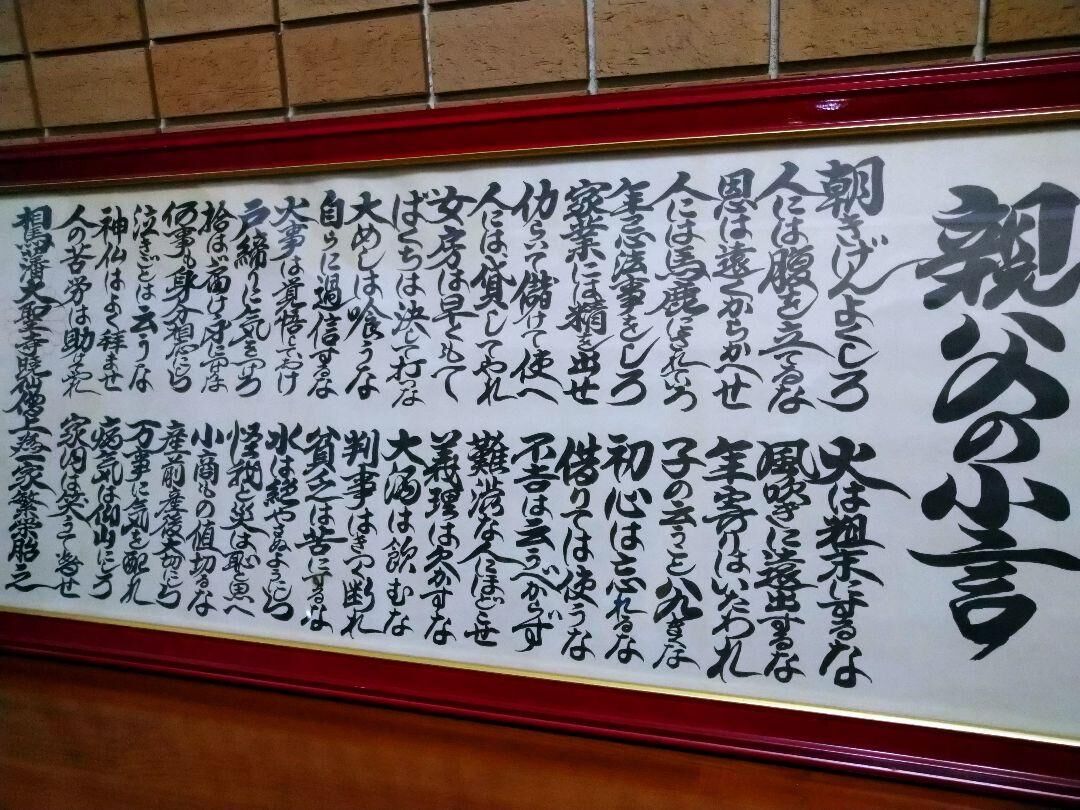 親父の小言
朝きげんよくしろ
火は粗末にするな
人には腹を立てるな
風吹きに遠出するな
恩は遠くからかへせ
年寄りはいたわれ
人には馬鹿にされていろ
子の云うこと八九きくな
年忌法事をしろ
初心は忘れるな
家業には精を出せ
借りては使うな
仂らいて儲けて使へ
不吉は云うべからず
人には貸してやれ
難渋な人にほどこせ
女房は早くもて
義理は欠かすな
ばくちは決して打つな
大酒は飲むな
大めしは喰うな
判事はきつく断れ
自らに過信するな
貧乏は苦にするな
火事は覚悟しておけ
水は絶やさぬようにしろ
戸締りに気をつけろ
怪我と災は恥と思へ
拾はば届け身につけるな
小商もの値切るな
何事も身分相応にしろ
産前産後大切にしろ
泣きごとは云うな
万事に気を配れ
神仏はよく拝ませ
病気は仰山にしろ
人の苦労は助けてやれ
家内は笑うて暮せ
相馬藩大聖寺暁仙僧上